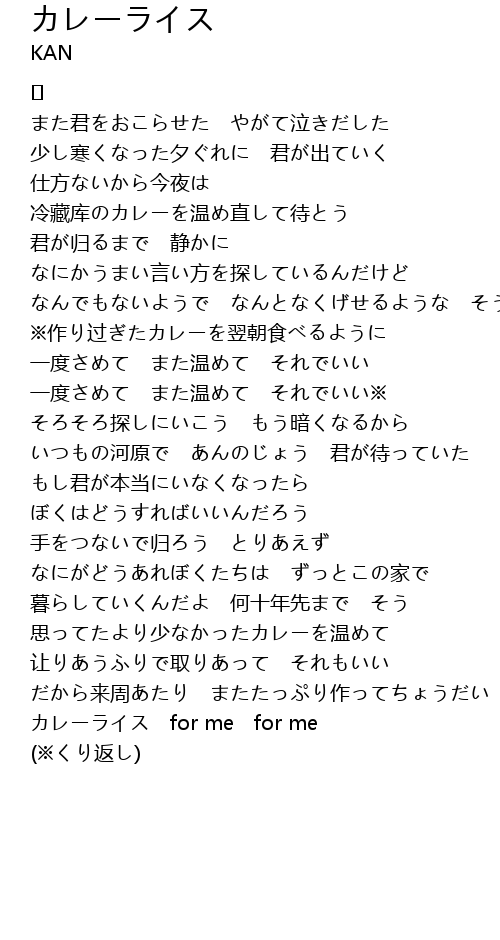 カレーライス
KAN
[]
また君をおこらせた　やがて泣きだした
少し寒くなった夕ぐれに　君が出ていく
仕方ないから今夜は
冷藏库のカレーを温め直して待とう
君が归るまで　静かに
なにかうまい言い方を探しているんだけど
なんでもないようで　なんとなくげせるような　そう
※作り过ぎたカレーを翌朝食べるように
一度さめて　また温めて　それでいい
一度さめて　また温めて　それでいい※
そろそろ探しにいこう　もう暗くなるから
いつもの河原で　あんのじょう　君が待っていた
もし君が本当にいなくなったら
ぼくはどうすればいいんだろう
手をつないで归ろう　とりあえず
なにがどうあれぼくたちは　ずっとこの家で
暮らしていくんだよ　何十年先まで　そう
思ってたより少なかったカレーを温めて
让りあうふりで取りあって　それもいい
だから来周あたり　またたっぷり作ってちょうだい
カレーライス　for me　for me
(※くり返し)